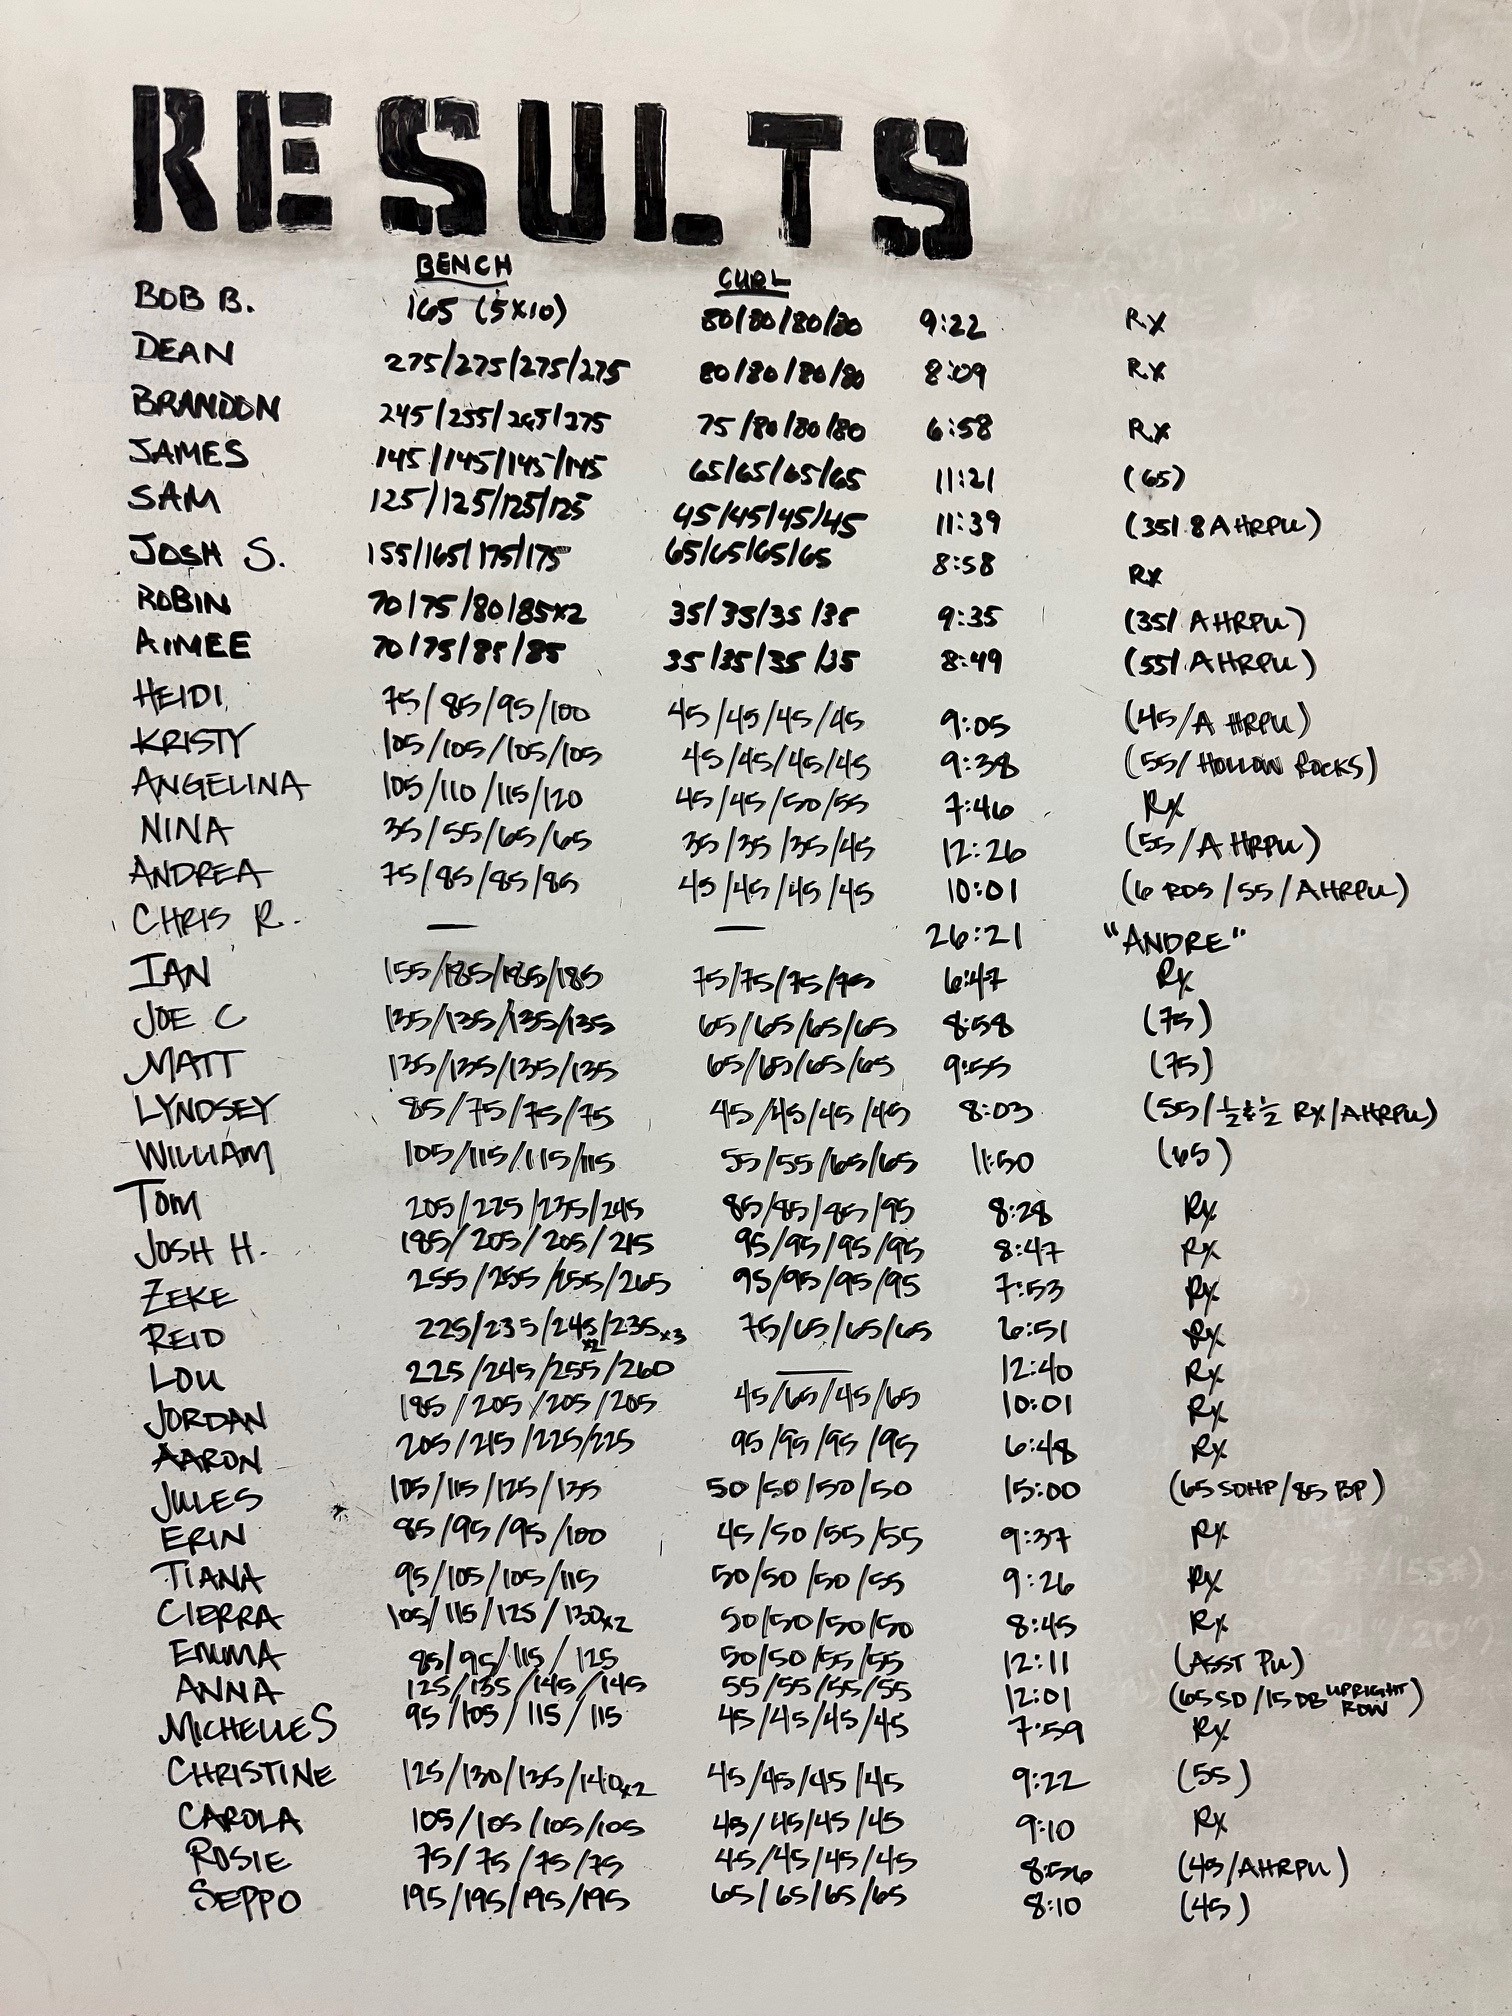 RESULTS
BENCH CURL
BOB B. 165 (5x10) 80/80/80/80 9:22 Rx
DEAN 275/275/275/275 80/80/80/80 8:09 Rx
BRANDON 245/255/265/275 75/80/80/80 6:58 Rx
JAMES 145/145/145/145 65/65/65/65 11:21 (65)
SAM 125/125/125/125 45/45/45/45 11:39 (35/8 AHRPU)
JOSH S. 155/165/175/175 65/65/65/65 8:58 Rx
ROBIN 70/75/80/85x2 35/35/35/35 9:35 (35/ AHRPU)
AIMEE 70/75/85/85 35/35/35/35 8:49 (55/ AHRPU)
HEIDI 75/85/95/100 45/45/45/45 9:05 (45/A HRPU)
KRISTY 105/105/105/105 45/45/45/45 9:38 (55/ HOLLOW ROCKS)
ANGELINA 105/110/115/120 45/45/50/55 7:46 Rx
NINA 35/55/65/65 35/35/35/45 12:26 (55/A HRPU)
ANDREA 75/85/85/85 45/45/45/45 10:01 (6 RDS/55/AHRPU)
CHRIS R. — — 26:21 "ANDRE"
IAN 155/185/185/185 75/75/75/75 6:47 Rx
JOE C 135/135/135/135 65/65/65/65 8:58 (75)
MATT 135/135/135/135 65/65/65/65 9:55 (75)
LYNDSEY 85/75/75/75 45/45/45/45 8:03 (55/½&½ RX/AHRPU)
WILLIAM 105/115/115/115 55/55/65/65 11:50 (65)
TOM 205/225/235/245 85/85/85/95 8:28 Rx
JOSH H. 185/205/205/215 95/95/95/95 8:47 Rx
ZEKE 255/255/255/265 95/95/95/95 7:53 Rx
REID 225/235/245x2/235x3 75/65/65/65 6:51 Rx
LOU 225/245/255/260 — 12:40 Rx
JORDAN 185/205/205/205 45/65/45/65 10:01 Rx
AARON 205/215/225/225 95/95/95/95 6:48 Rx
JULES 105/115/125/135 50/50/50/50 15:00 (65 SDHP/85 BP)
ERIN 85/95/95/100 45/50/55/55 9:37 Rx
TIANA 95/105/105/115 50/50/50/55 9:26 Rx
CIERRA 105/115/125/130x2 50/50/50/50 8:45 Rx
EMMA 85/95/115/125 50/50/55/55 12:11 (ASST PU)
ANNA 125/135/145/145 55/55/55/55 12:01 (65SD/15DB UPRIGHT ROW)
MICHELLE S 95/105/115/115 45/45/45/45 7:59 Rx
CHRISTINE 125/130/135/140x2 45/45/45/45 9:22 (55)
CAROLA 105/105/105/105 45/45/45/45 9:10 Rx
ROSIE 75/75/75/75 45/45/45/45 8:56 (45/AHRPU)
SEPPO 195/195/195/195 65/65/65/65 8:10 (45)